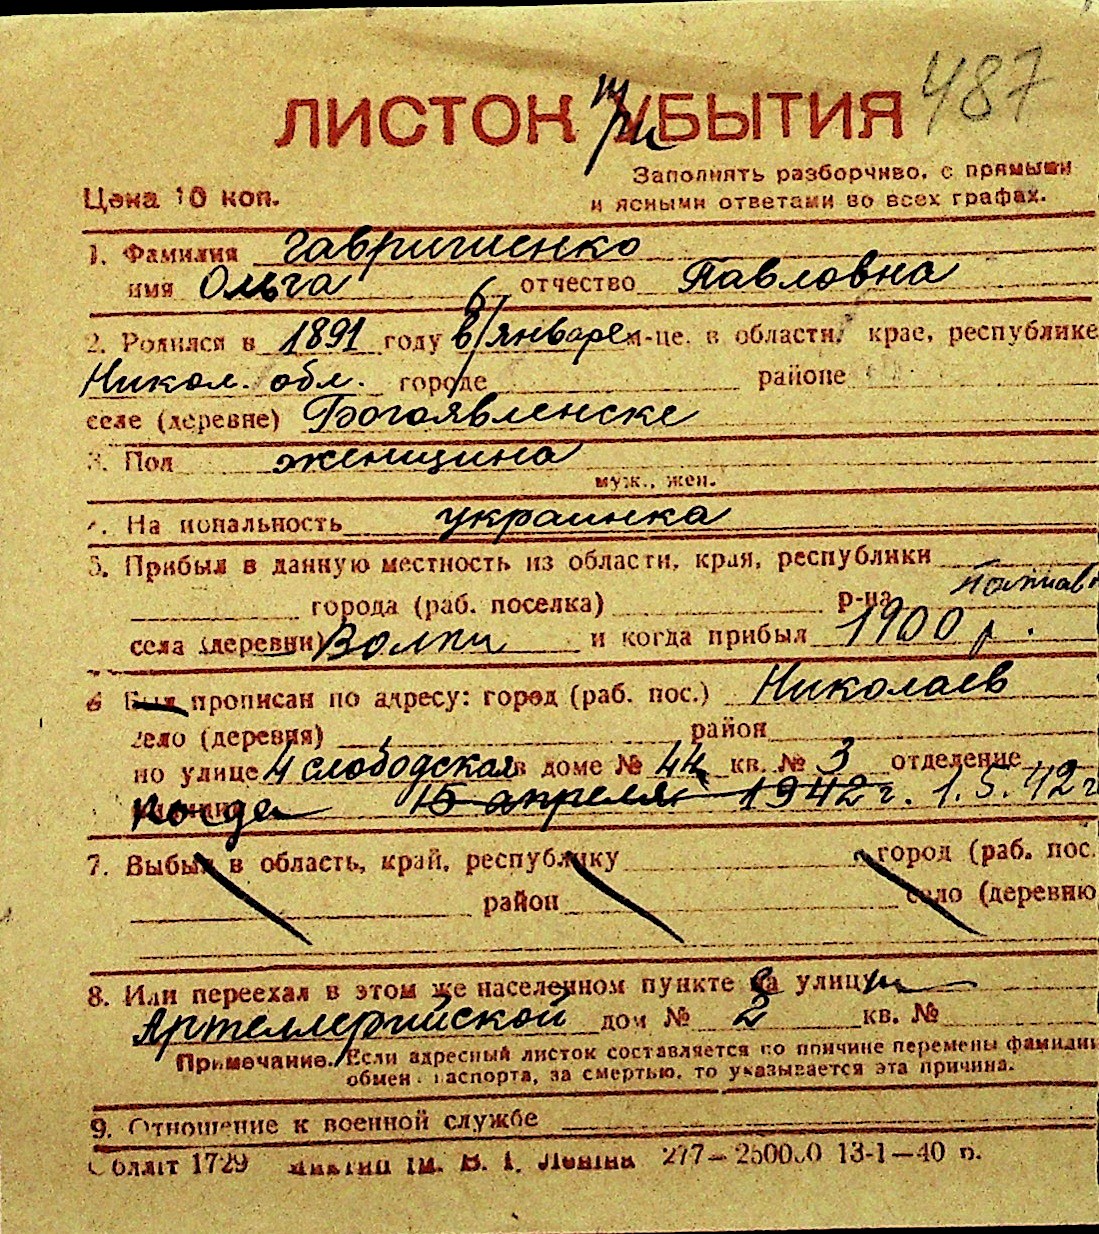 487
ЛИСТОК ПриБЫТИЯ
Заполнять разборчиво, с прямыми
Цена 10 коп. и ясными ответами во всех графах.
1. Фамилия Гавришенко
имя Ольга отчество Павловна
2. Родился в 1891 году 6/января м-це, в области, крае, республике
Никол. обл. городе районе
селе (деревне) Богоявленске
3. Пол женщина
муж., жен.
4. Национальность украинка
5. Прибыл в данную местность из области, края, республики
города (раб. поселка) р-на
села (деревни) и когда прибыл 1900 р.
6 Был прописан по адресу: город (раб. пос.) Николаев
село (деревня) район
по улице 4 слободская в доме № 44 кв. № 3 отделение
Когда 15 апреля 1942 г. 1.5.42 г
7. Выбыл в область, край, республику город (раб. пос.
район село (деревню
8. Или переехал в этом же населенном пункте на улицу
Артеллерийской дом № 2 кв. №
Примечание. Если адресный листок составляется по причине перемены фамилии
обмен паспорта, за смертью, то указывается эта причина.
9. Отношение к военной службе
Облліт 1729 ім. В. І. Леніна 277— 13-1—40 р.